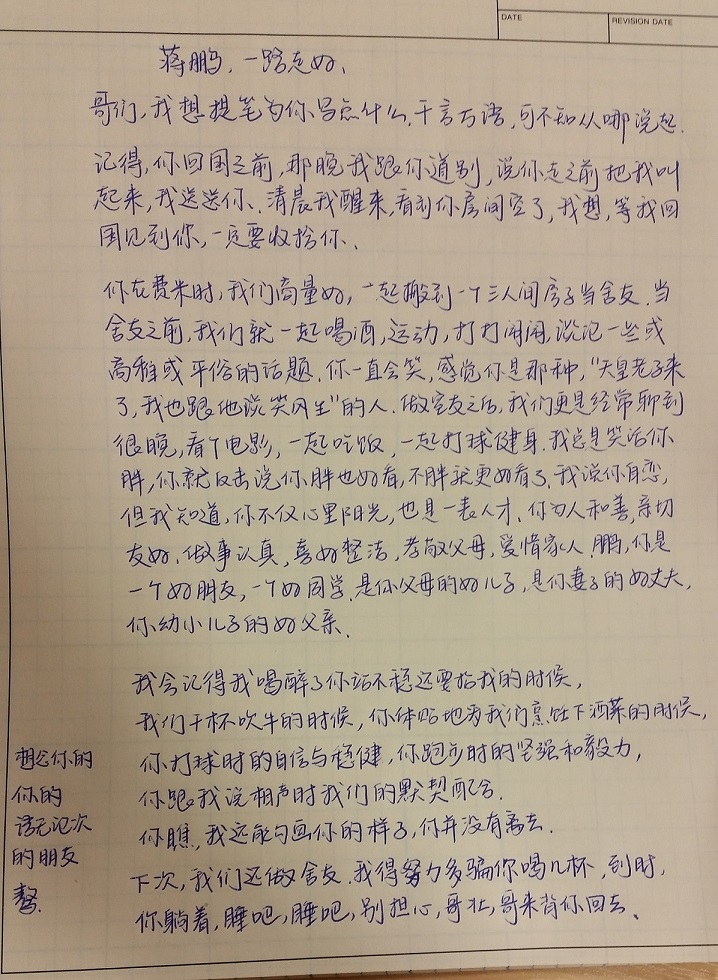 DATE
REVISION DATE
蒋鹏,一路走好、
哥们,我想提笔为你写点什么,千言万语,可不知从哪说起.
记得,你回国之前,那晚我跟你道别,说你走之前把我叫
起来,我送送你.清晨我醒来,看到你房间空了,我想,等我回
国见到你,一定要收拾你.
你在费米时,我们商量好,一起搬到一个三人间房子当舍友.当
舍友之前,我们就一起喝酒,运动,打打闹闹,谈论一些或
高雅或平俗的话题.你一直会笑,感觉你是那种,“天皇老子来
了,我也跟他谈笑风生”的人.做室友之后,我们更是经常聊到
很晚,看个电影,一起吃饭,一起打球健身.我总是笑话你
胖,你就反击说你胖也好看,不胖就更好看了.我说你自恋,
但我知道,你不仅心里阳光,也是一表人才.你为人和善,亲切
友好.做事认真,喜好整洁,孝敬父母,爱惜家人.鹏,你是
一个好朋友,一个好同学.是你父母的好儿子,是你妻子的好丈夫,
你幼小儿子的好父亲.
我会记得我喝醉了你站不稳还要抬我的时候,
我们干杯吹牛的时候,你体贴地为我们烹饪下酒菜的时候,
你打球时的自信与稳健,你跑步时的坚强和毅力,
你跟我说相声时我们的默契配合.
你瞧,我还能勾画你的样子,你并没有离去.
下次,我们还做舍友.我得努力多骗你喝几杯,到时,
你躺着,睡吧,睡吧,别担心,哥壮,哥来背你回去.
想念你的
你的
语无伦次
的朋友